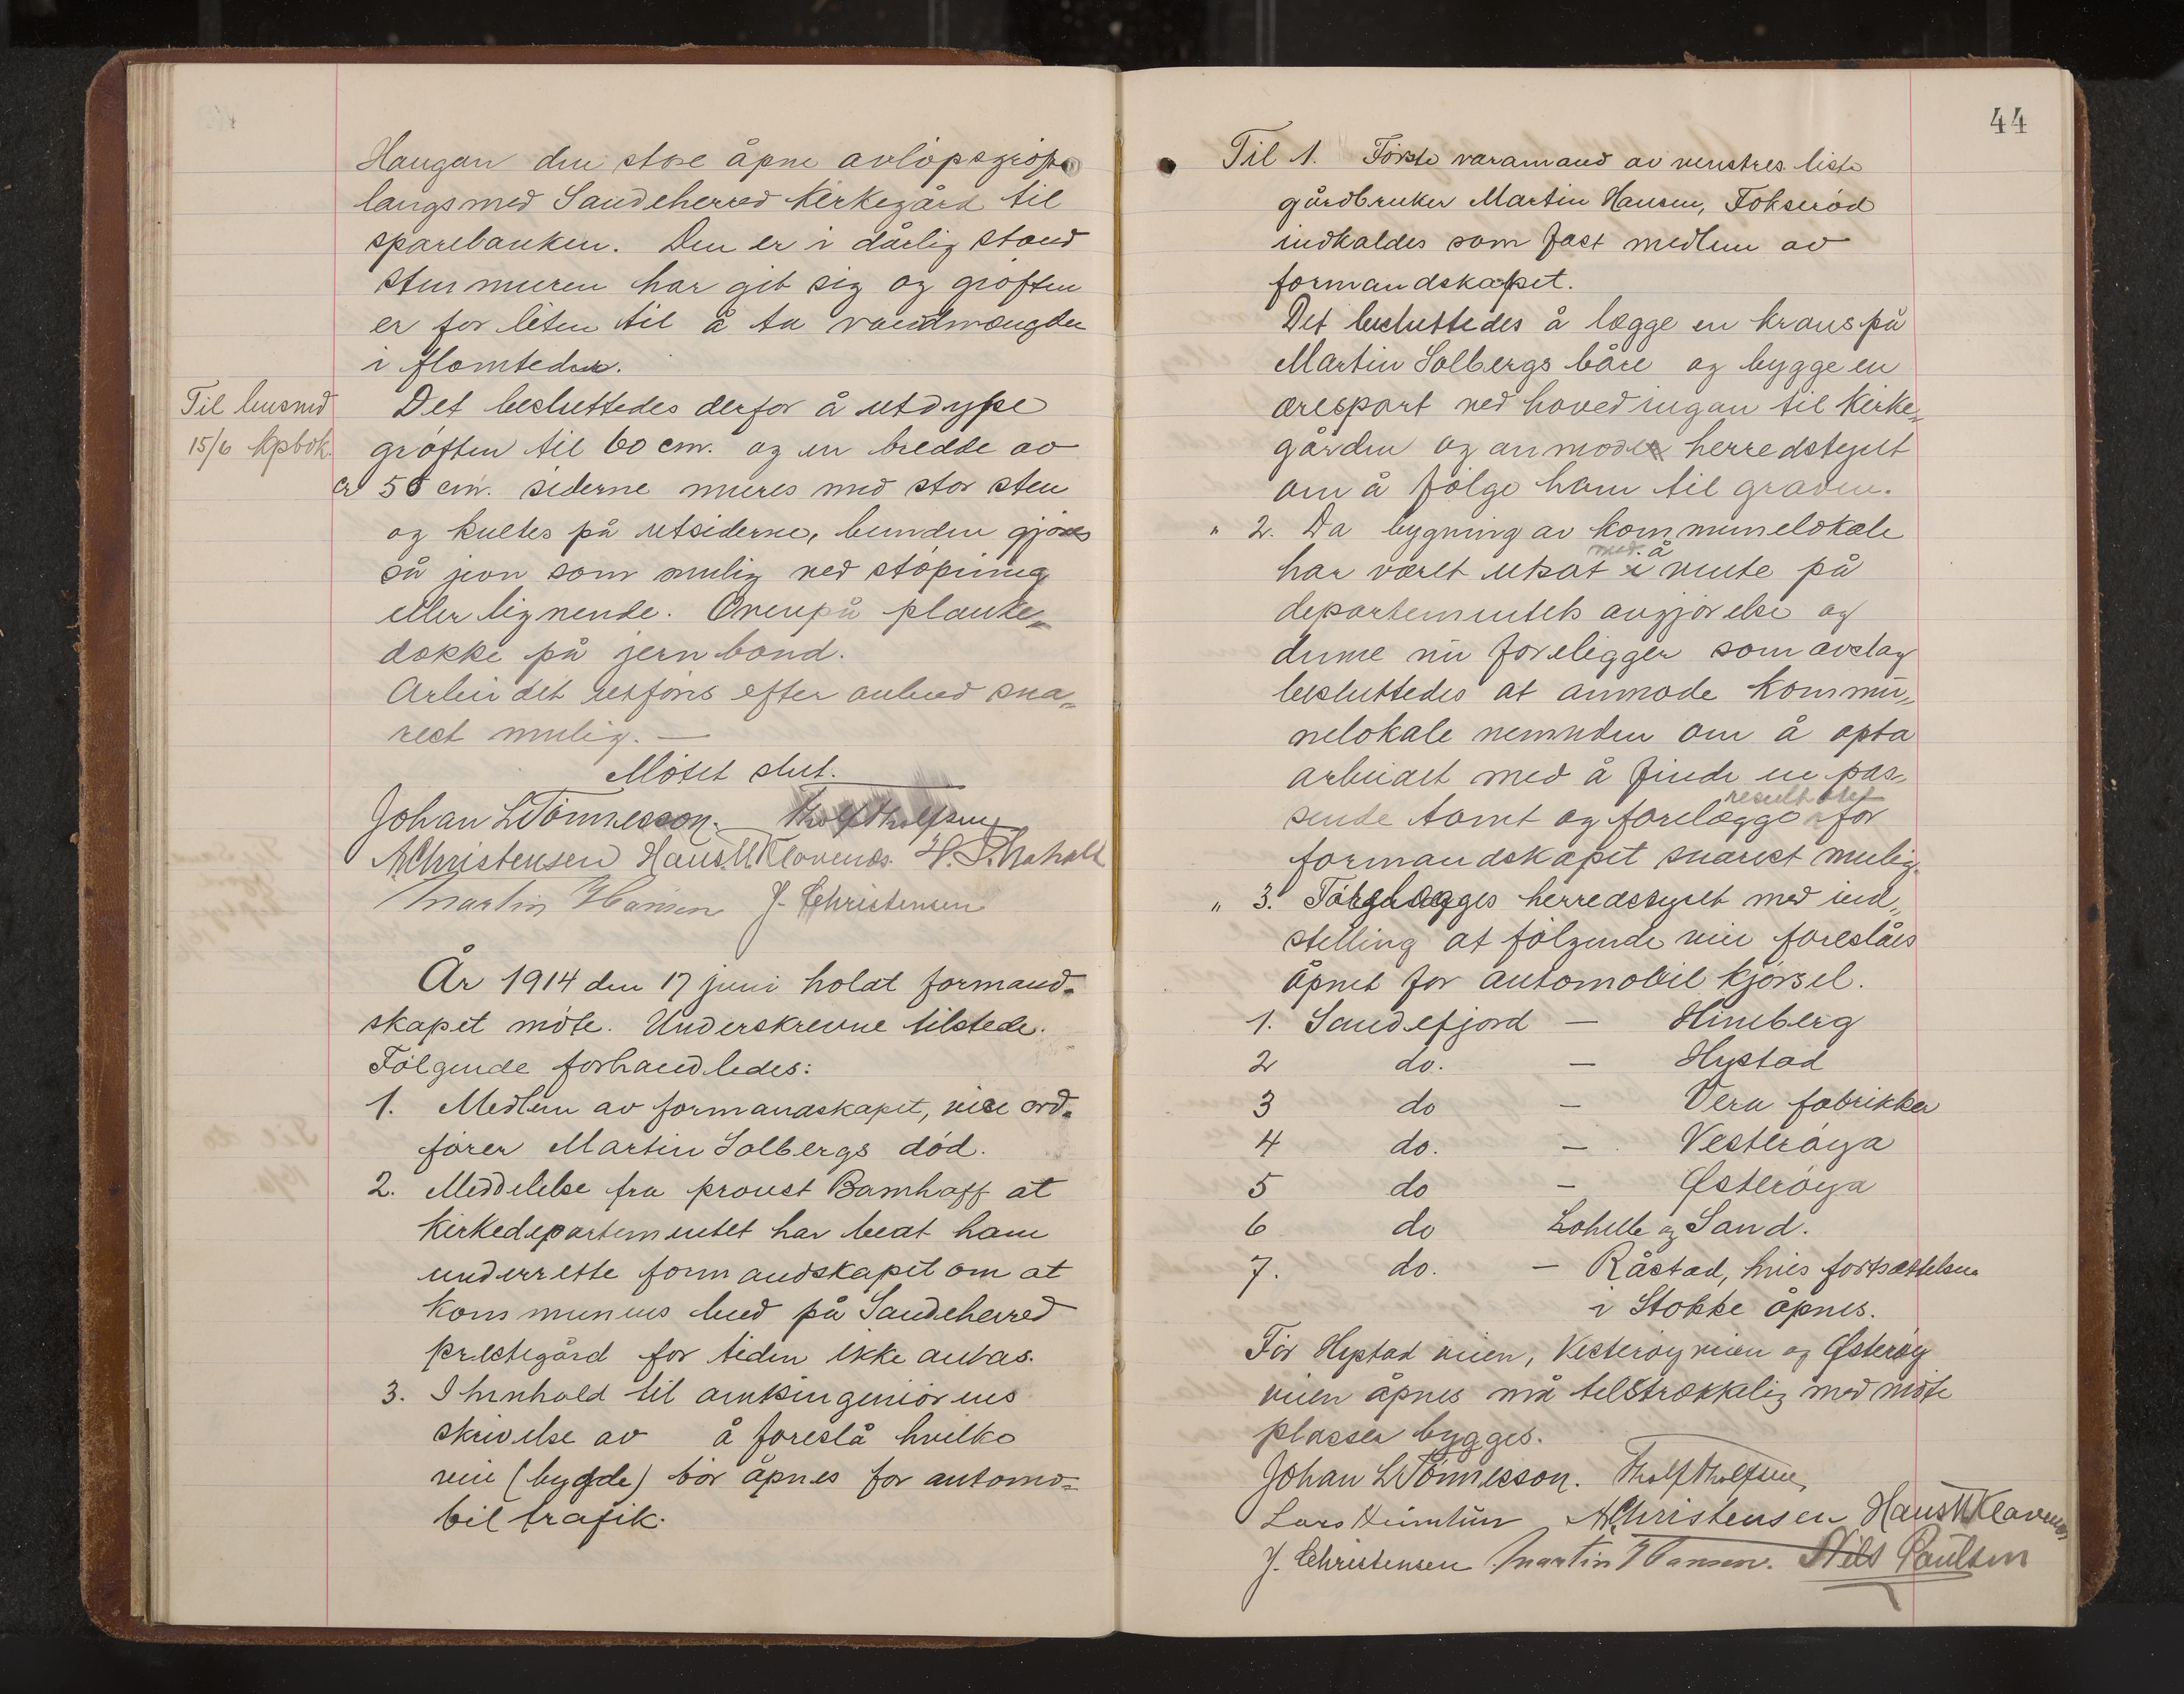 Haugan den store åpne avløpsgrøft
langsmed Sandeherred Kirkegård til
sparebanken. Den er i dårlig stand
stenmuren har git sig og grøften
er for liten til å ta vandmængden
i flomteder.
Til busmd
15/6 kpbok.
Det besluttedes derfor å utdype
grøften til 60 cm. og en bredde av
cr 50 cm. siderne mures med stor sten
og kultes på utsiderne, bunden gjøres
så jevn som mulig ved støpning
eller lignende. Ovenpå planke-
dække på jernbånd.
Arbeidet utføres efter anbud sna-
rest mulig. —
Møtet slut.
Johan L Tønnesson. Tholf Tholfsen
A Christensen Hans M Klavenes.
Martin Hansen J. Christensen
År 1914 den 17 juni holdt formand-
skapet møte. Underskrevne tilstede.
Følgende forhandledes:
1. Medlem av formandskapet, vice ord-
fører Martin Solbergs død.
2. Meddelelse fra proust Bomhoff at
Kirkedepartementet har bedt ham
underrette formandskapet om at
kommunens bud på Sandeherred
prestegård for tiden ikke antas.
3. I henhold til amtsingeniørens
skrivelse av å foreslå hvilke
veie (bygde) bør åpnes for automo-
bil trafik.
44
Til 1. Første varamand av venstres liste
gårdbruker Martin Hansen, Fokserød
indkaldes som fast medlem av
formandskapet.
Det besluttedes å lægge en krans på
Martin Solbergs båre og bygge en
æresport ved hovedingan til kirke-
gården og anmode herredstyret
om å følge ham til graven.
" 2. Da bygning av kommunelokale
med å
har været utsat i vente på
departementets avgjørelse og
denne nu foreligger som avslag
besluttedes at anmode kommu-
nelokale nemnden om å opta
arbeidet med å finde en pas-
resultatet
sende tomt og forelægge for
formandskapet snarest mulig.
" 3. Forelægges herredsstyret med ind-
stilling at følgende veie foreslåes
åpnet for automobil kjørsel.
1. Sandefjord — Himberg
2 do. — Hystad
3 do — Vera fabrikker
4 do. — Vesterøya
5 do — Østerøya
6 do Lohelle og Sand.
7. do. — Råstad, hvis fortsættelsen
i Stokke åpnes.
Før Hystad veien, Vesterøyveien og Østerøy
veien åpnes må tilstrækkelig med møte
plasser bygges.
Johan L Tønnesson. Tholf Tholfsen,
Lars Heimtun A Christensen Hans M Klavenes
J. Christensen Martin Hansen. Nils Paulsen